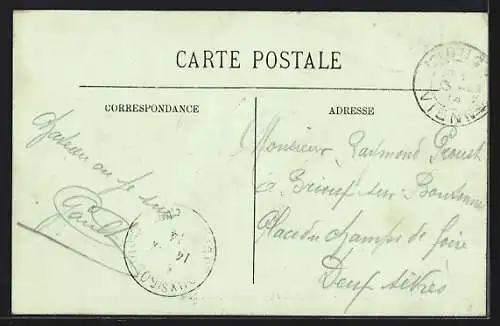 CARTE POSTALE
CORRESPONDANCE
ADRESSE
Gateau ou je suis
Monsieur Raimond Proust
a Brioux sur Boutonne
Place du champs de foire
Deux sèvres
VIENNE
14